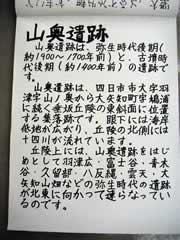 山奥遺跡
山奥遺跡は、弥生時代後期(
約1900〜1700年前)と、古墳時
代後期(約1400年前)の遺跡で
す。
山奥遺跡は、四日市市大字羽
津字山ノ奥から大矢知町字
に続く垂坂丘陵の東斜面に位置
する集落跡です。眼下には海岸
低地が広がり、丘陵の北側には
十四川が流れています。
丘陵上には、山奥遺跡をはじ
めとして羽津広・富士谷・青木
谷・久留部・八反縄・雲天・大
矢知山畑などの弥生時代の遺跡
が北東に向かって連なっている
のです。